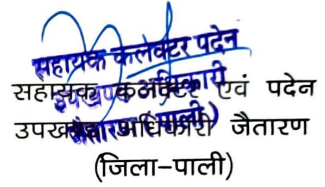 सहायक कलेक्टर पदेन
उपखण्ड अधिकारी
जैतारण (पाली)
सहायक कलेक्टर एवं पदेन
उपखण्ड अधिकारी जैतारण
(जिला-पाली)